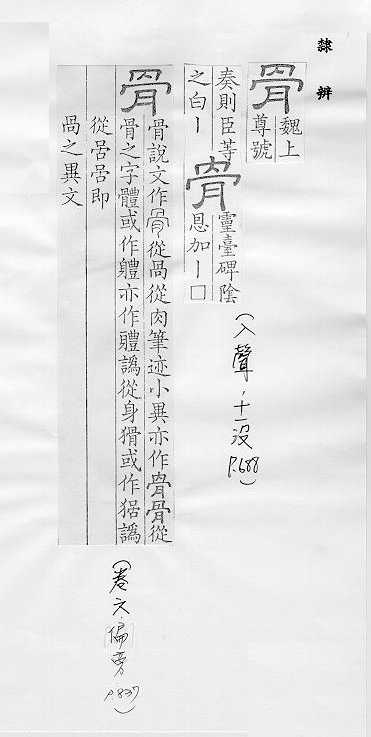 隸辨
骨
魏上
尊號
奏則臣等
之白丨
骨
靈臺碑陰
恩加丨囗
(入聲，十一沒 P.688)
骨
骨說文作骨從咼從肉筆迹小異亦作骨骨從
骨之字體或作軆亦作譌從身猾或作譌
從居居即
咼之異文
(卷六．偏旁 P.837)